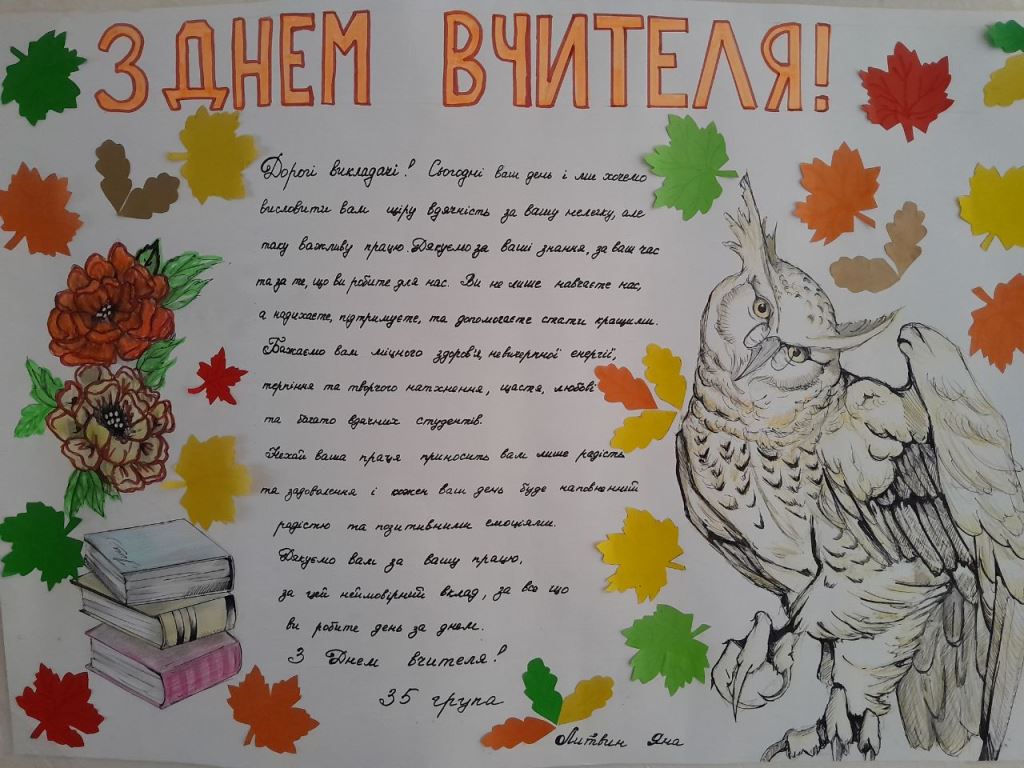 З ДНЕМ ВЧИТЕЛЯ!
Дорогі викладачі! Сьогодні ваш день і ми хочемо
висловити вам щіру вдячність за вашу нелегку, але
таку важливу працю. Дякуємо за ваші знання, за ваш час
та за те, що ви робите для нас. Ви не лише навчаєте нас,
а надихаєте, підтримуєте, та допомогаєте стати кращими.
Бажаємо вам міцного здоров'я, невичерпної енергії,
терпіння та творчого натхнення, щастя, любові
та багато вдячних студентів.
Нехай ваша праця приносить вам лише радість
та задоволення і кожен ваш день буде наповнений
радістю та позитивними емоціями.
Дякуємо вам за вашу працю,
за цей неймовірний вклад, за все що
ви робите день за днем.
З Днем вчителя!
35 група
Литвин Яна